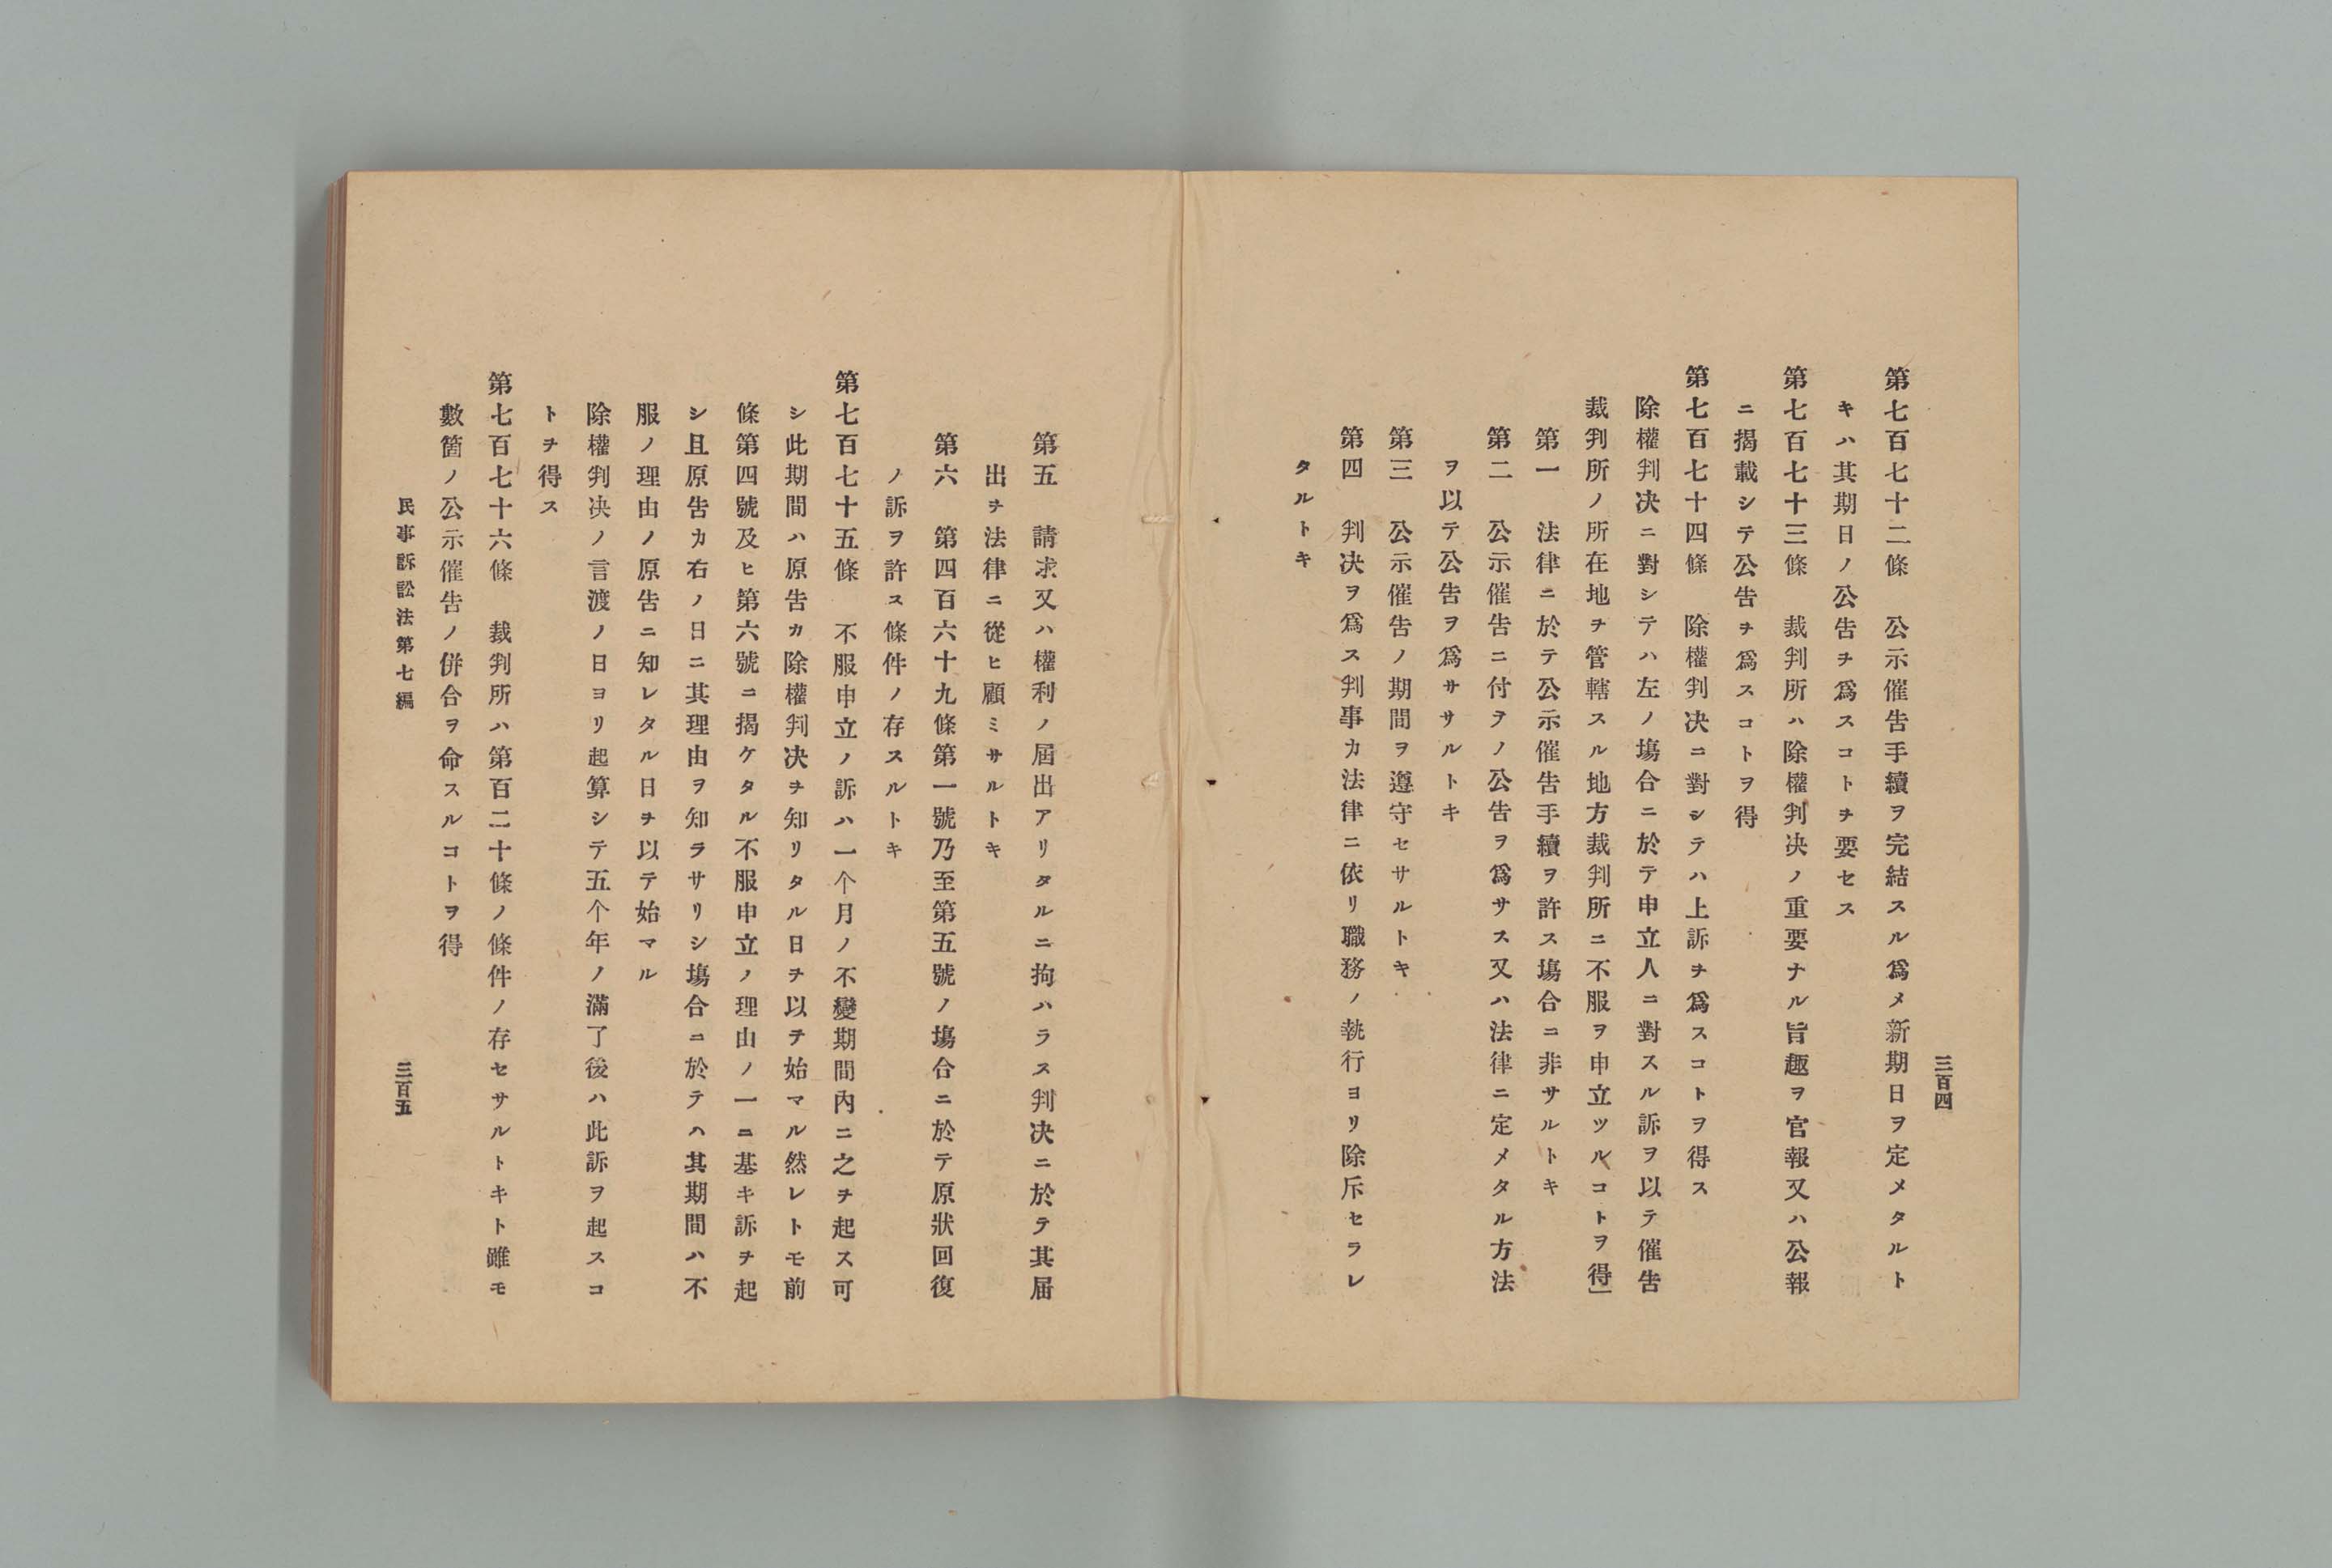 三百四
第七百七十二條　公示催告手續ヲ完結スル爲メ新期日ヲ定メタルト
キハ其期日ノ公告チ爲スコトチ要セス
第七百七十三條　裁判所ハ除權判决ノ重要ナル旨趣ヲ官報又ハ公報
ニ揭載シテ公告チ爲スコトヲ得
第七百七十四條　除權判决ニ對シテハ上訴チ爲スコトヲ得ス
除權判决ニ對シテハ左ノ塲合ニ於テ申立人ニ對スル訴ヲ以テ催告
裁判所ノ所在地チ管轄スル地方裁判所ニ不服ヲ申立ツルコトヲ得」
第一　法律ニ於テ公示催告手續ヲ許ス塲合ニ非サルトキ
第二　公示催告ニ付テノ公告ヲ爲サス又ハ法律ニ定メタル方法
ヲ以テ公告ヲ爲サヽルトキ
第三　公示催告ノ期間ヲ遵守セサルトキ
第四　判决ヲ爲ス判事カ法律ニ依リ職務ノ執行ヨリ除斥セラレ
タルトキ
第五　請求又ハ權利ノ屆出アリタルニ拘ハラス判决ニ於テ其届
出チ法律ニ從ヒ顧ミサルトキ
第六　第四百六十九條第一號乃至第五號ノ塲合ニ於テ原狀回復
ノ訴ヲ許ス條件ノ存スルトキ
第七百七十五條　不服申立ノ訴ハ一个月ノ不變期間內ニ之チ起ス可
シ此期間ハ原告カ除權判决チ知リタル日チ以テ始マル然レトモ前
條第四號及ヒ第六號ニ揭ケタル不服申立ノ理由ノ一ニ基キ訴チ起
シ且原告カ右ノ日ニ其理由ヲ知ラサリシ塲合ニ於テハ其期間ハ不
服ノ理由ノ原告ニ知レタル日チ以テ始マル
除權判决ノ言渡ノ日ヨリ起算シテ五个年ノ滿了後ハ此訴ヲ起スコ
トチ得ス
第七百七十六條　裁判所ハ第百二十條ノ條件ノ存セサルトキト雖モ
數箇ノ公示催告ノ併合ヲ命スルコトヲ得
民事訴訟法第七編
三百五